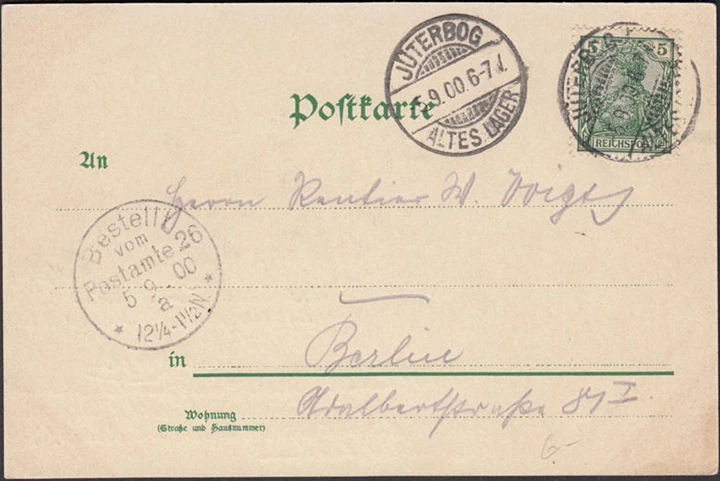 JÜTERBOG
5.9.00.6-7V.
ALTES LAGER
5 5
REICHSPOST
JÜTERBOG
Postkarte
An
Herrn Rentier W. Voigt
Bestellt
vom
Postamte 26
5 9 00
a
* 12¼-1½N. *
in
Berlin
Wohnung
(Straße und Hausnummer)
Adalbertstraße 81 I
6-